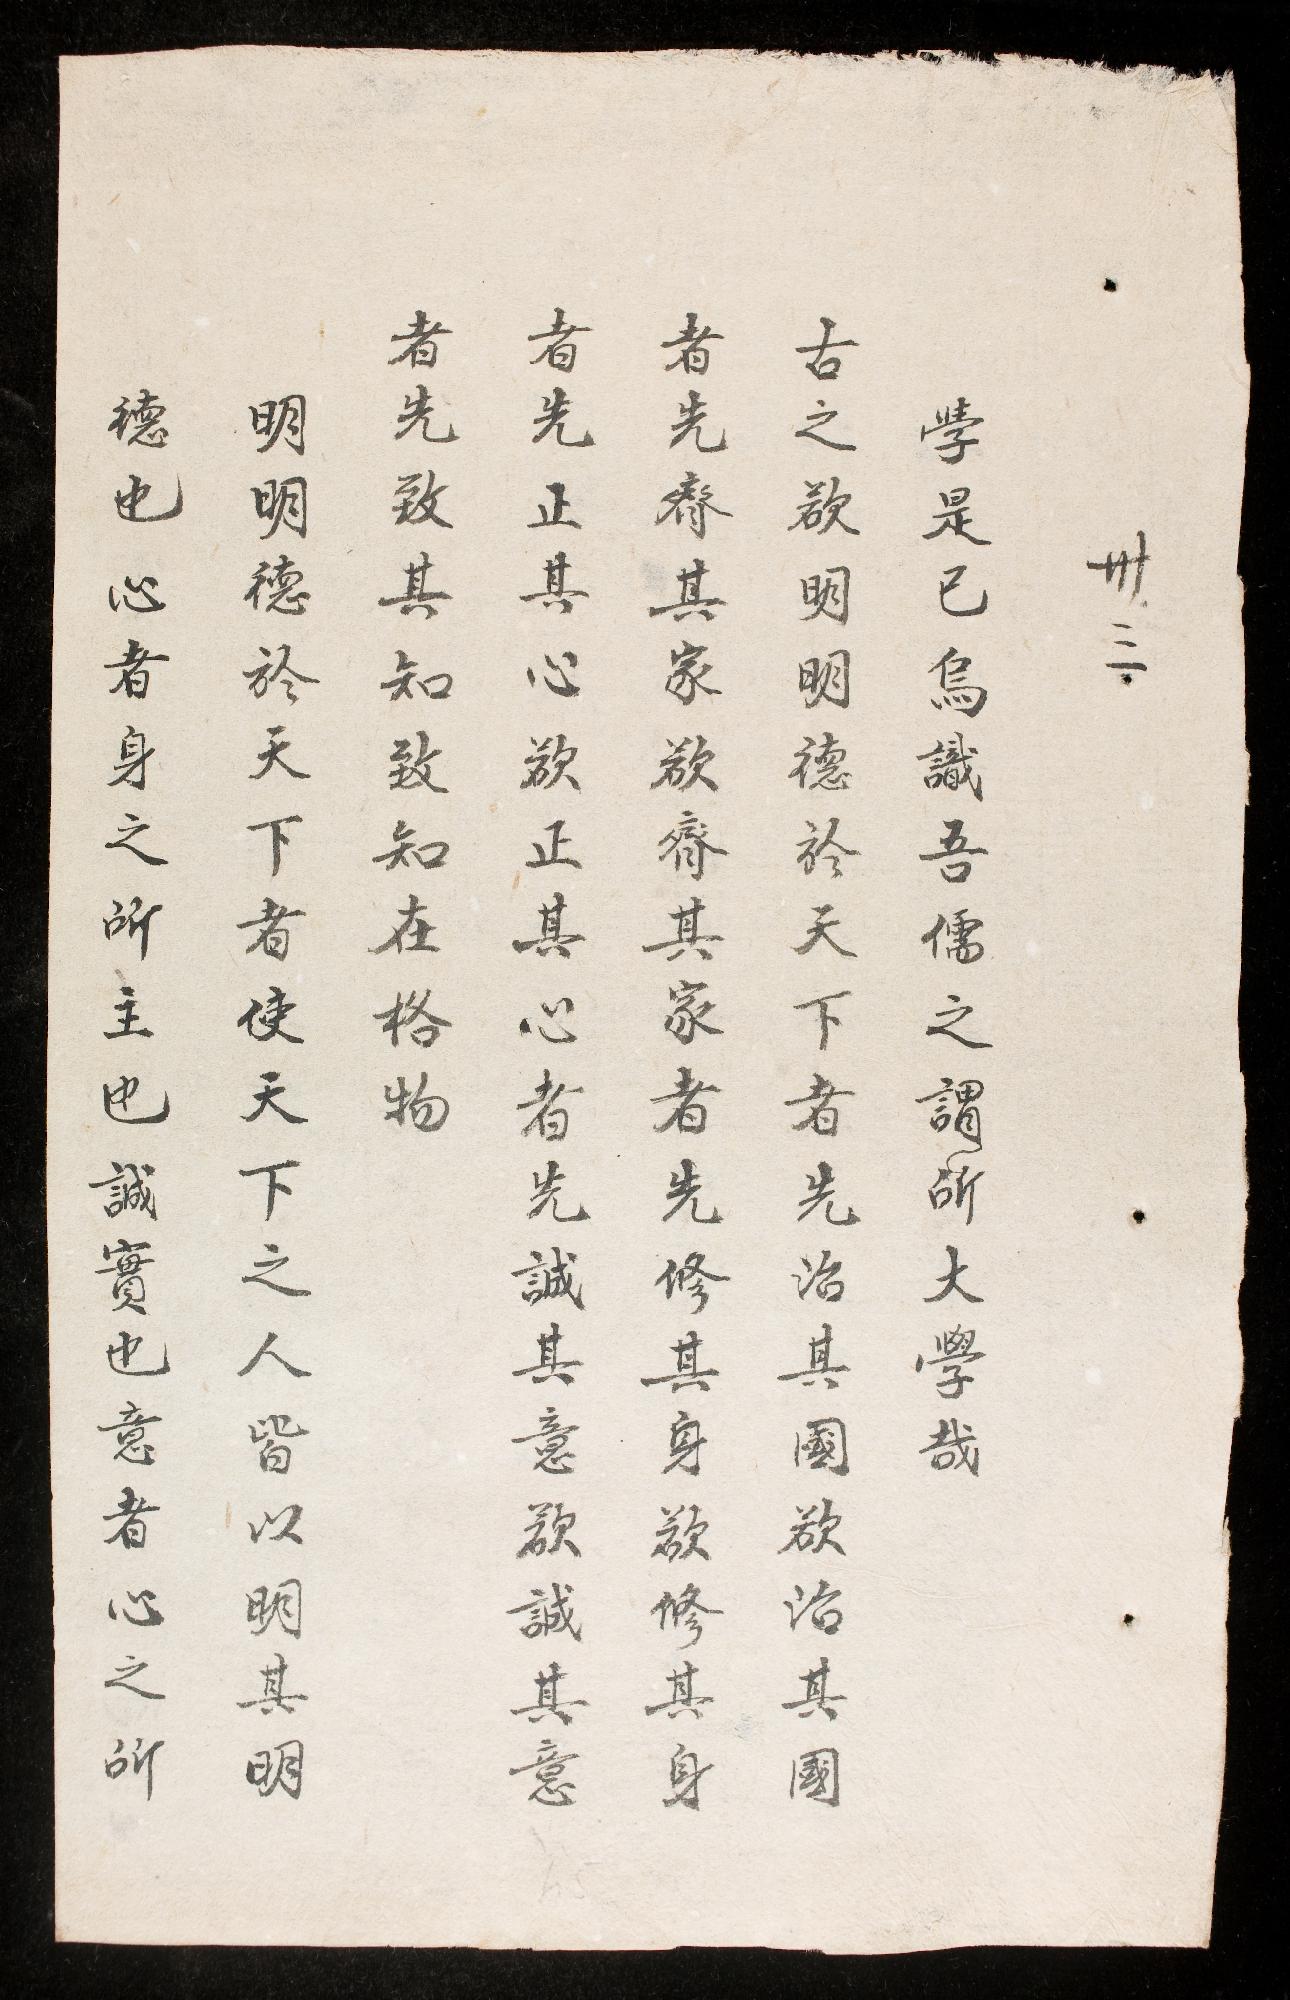 卅三
學是已烏識吾儒之謂所大學哉
古之欲明明德於天下者先治其國欲治其國
者先齊其家欲齊其家者先修其身欲修其身
者先正其心欲正其心者先誠其意欲誠其意
者先致其知致知在格物
明明德於天下者使天下之人皆以明其明
德也心者身之所主也誠實也意者心之所